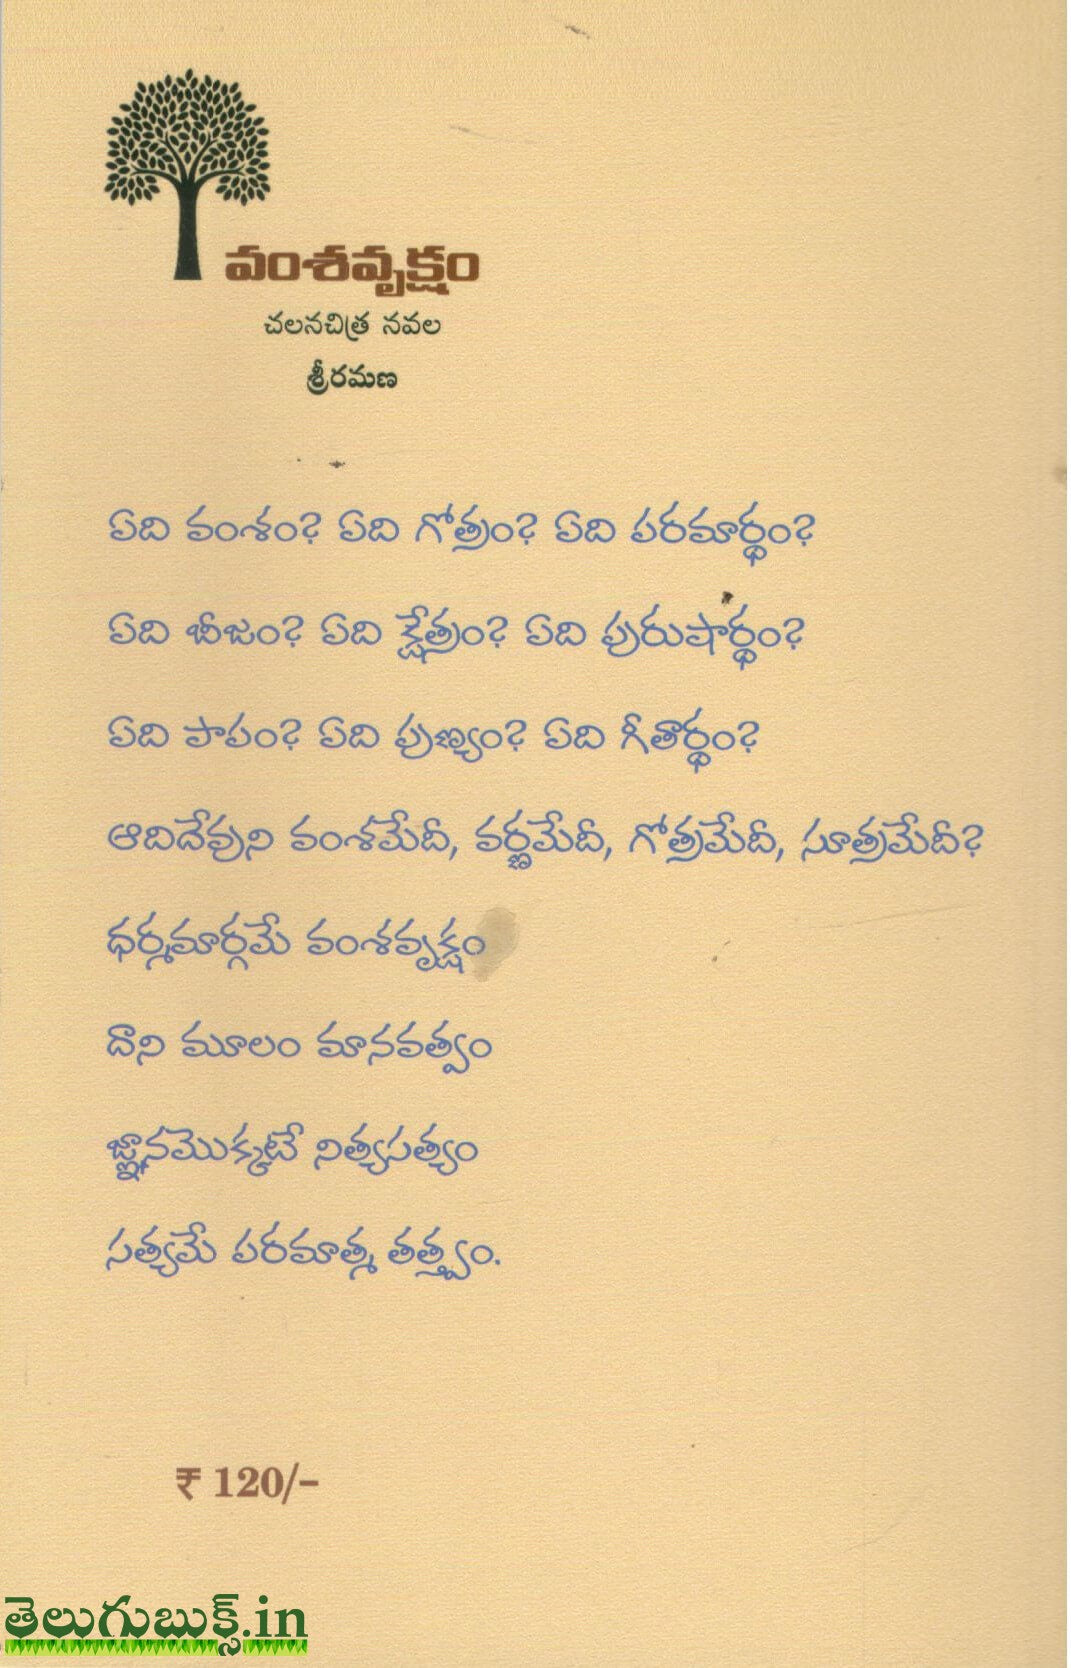 వంశవృక్షం
చలనచిత్ర నవల
శ్రీరమణ
ఏది వంశం? ఏది గోత్రం? ఏది పరమార్థం?
ఏది బీజం? ఏది క్షేత్రం? ఏది పురుషార్థం?
ఏది పాపం? ఏది పుణ్యం? ఏది గీతార్థం?
ఆదిదేవుని వంశమేదీ, వర్ణమేదీ, గోత్రమేదీ, సూత్రమేదీ?
ధర్మమార్గమే వంశవృక్షం
దాని మూలం మానవత్వం
జ్ఞానమొక్కటే నిత్యసత్యం
సత్యమే పరమాత్మ తత్త్వం.
₹ 120/-
తెలుగుబుక్స్.in